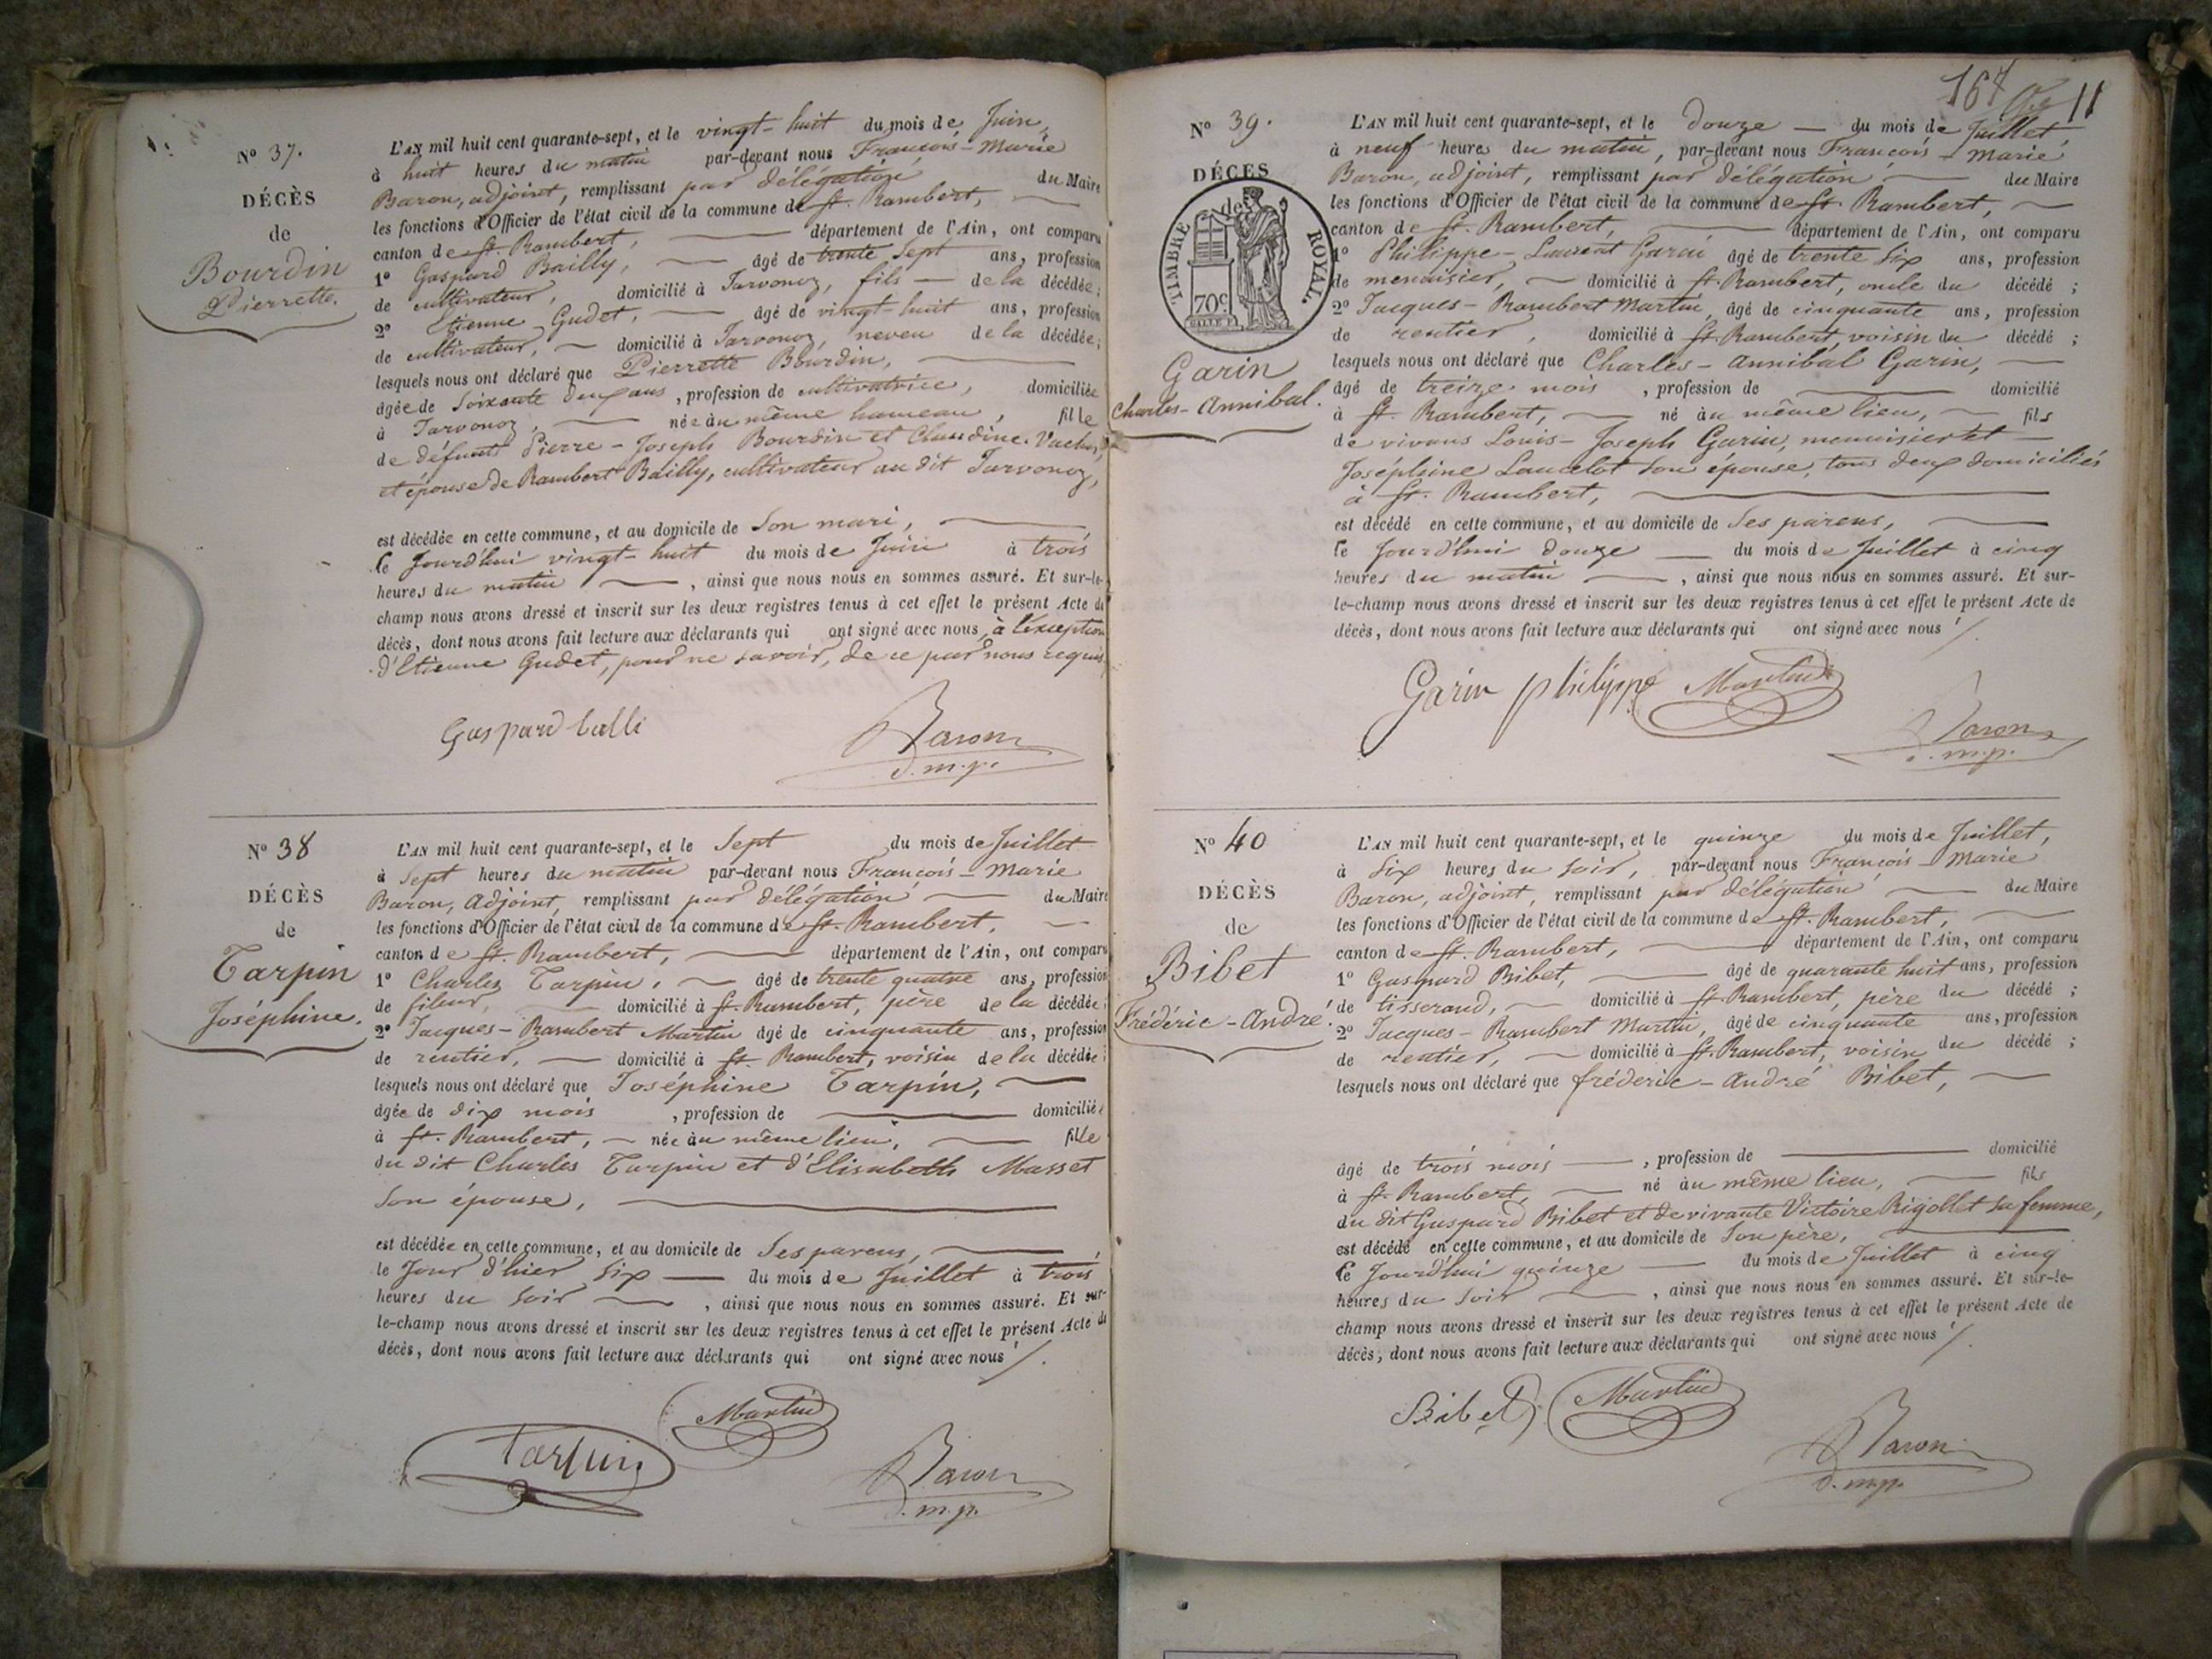 N° 37.
DÉCÈS
de
Bourdin
Pierrette.
L'AN mil huit cent quarante-sept, et le vingt-huit du mois de Juin,
à huit heures du matin par-devant nous François-Marie
Baron, adjoint, remplissant par délégation du Maire
les fonctions d'Officier de l'état civil de la commune de St. Rambert,
canton de St. Rambert, département de l'Ain, ont comparu
1° Gaspard Bailly, âgé de trente sept ans, profession
de cultivateur, domicilié à Javonoz, fils de la décédée;
2° Etienne Gudet, âgé de vingt-huit ans, profession
de cultivateur, domicilié à Javonoz, neveu de la décédée;
lesquels nous ont déclaré que Pierrette Bourdin,
âgée de soixante deux ans, profession de cultivatrice, domiciliée
à Javonoz, née au même hameau, fille
de défunts Pierre-Joseph Bourdin et Claudine
et épouse de Rambert Bailly, cultivateur au dit Javonoz,
est décédée en cette commune, et au domicile de son mari,
le jourd'hui vingt-huit du mois de Juin à trois
heures du matin, ainsi que nous nous en sommes assuré. Et sur-le-
champ nous avons dressé et inscrit sur les deux registres tenus à cet effet le présent Acte de
décès, dont nous avons fait lecture aux déclarants qui ont signé avec nous, à l'exception
d'Etienne Gudet, pour ne savoir, de ce par nous requis.
Gaspard balli
Baron
d. m. p.
N° 38
DÉCÈS
de
Tarpin
Joséphine.
L'AN mil huit cent quarante-sept, et le sept du mois de Juillet
à sept heures du matin par-devant nous François-Marie
Baron, adjoint, remplissant par délégation du Maire
les fonctions d'Officier de l'état civil de la commune de St. Rambert,
canton de St. Rambert, département de l'Ain, ont comparu
1° Charles Tarpin, âgé de trente quatre ans, profession
de fileur, domicilié à St. Rambert, père de la décédée;
2° Jacques-Rambert Martin âgé de cinquante ans, profession
de rentier, domicilié à St. Rambert, voisin de la décédée;
lesquels nous ont déclaré que Joséphine Tarpin,
âgée de dix mois, profession de domiciliée
à St. Rambert, née au même lieu, fille
du dit Charles Tarpin et d'Elisabeth Masset
son épouse,
est décédée en cette commune, et au domicile de ses parens,
le jour d'hier six du mois de Juillet à trois
heures du soir, ainsi que nous nous en sommes assuré. Et sur-
le-champ nous avons dressé et inscrit sur les deux registres tenus à cet effet le présent Acte de
décès, dont nous avons fait lecture aux déclarants qui ont signé avec nous /.
Martin
Tarpin
Baron
d. m. p.
167
11
N° 39.
DÉCES
de
TIMBRE ROYAL.
70c
Garin
Charles-Annibal.
L'AN mil huit cent quarante-sept, et le douze du mois de Juillet
à neuf heures du matin, par-devant nous François-Marie
Baron, adjoint, remplissant par délégation du Maire
les fonctions d'Officier de l'état civil de la commune de St. Rambert,
canton de St. Rambert, département de l'Ain, ont comparu
1° Philippe-Laurent Garin âgé de trente six ans, profession
de menuisier, domicilié à St. Rambert, oncle du décédé;
2° Jacques-Rambert Martin, âgé de cinquante ans, profession
de rentier, domicilié à St. Rambert, voisin du décédé;
lesquels nous ont déclaré que Charles-Annibal Garin,
âgé de treize mois, profession de domicilié
à St. Rambert, né au même lieu, fils
de vivans Louis-Joseph Garin, menuisier et
Joséphine Lancelot son épouse, tous deux domiciliés
à St. Rambert,
est décédé en cette commune, et au domicile de ses parens,
le jourd'hui douze du mois de Juillet à cinq
heures du matin, ainsi que nous nous en sommes assuré. Et sur-
le-champ nous avons dressé et inscrit sur les deux registres tenus à cet effet le présent Acte de
décès, dont nous avons fait lecture aux déclarants qui ont signé avec nous /.
Garin philippe Martin
Baron
d. m. p.
N° 40
DÉCÈS
de
Bibet
Frédéric-André.
L'AN mil huit cent quarante-sept, et le quinze du mois de Juillet,
à six heures du soir, par-devant nous François-Marie
Baron, adjoint, remplissant par délégation du Maire
les fonctions d'Officier de l'état civil de la commune de St. Rambert,
canton de St. Rambert, département de l'Ain, ont comparu
1° Gaspard Bibet, âgé de quarante huit ans, profession
de tisserand, domicilié à St. Rambert, père du décédé;
2° Jacques-Rambert Martin, âgé de cinquante ans, profession
de rentier, domicilié à St. Rambert, voisin du décédé;
lesquels nous ont déclaré que frédéric-André Bibet,
âgé de trois mois, profession de domicilié
à St. Rambert, né au même lieu, fils
du dit Gaspard Bibet et de vivante Victoire Rigollet sa femme,
est décédé en cette commune, et au domicile de son père,
le jourd'hui quinze du mois de Juillet à cinq
heures du soir, ainsi que nous nous en sommes assuré. Et sur-le-
champ nous avons dressé et inscrit sur les deux registres tenus à cet effet le présent Acte de
décès, dont nous avons fait lecture aux déclarants qui ont signé avec nous /.
Bibet Martin
Baron
d. m. p.